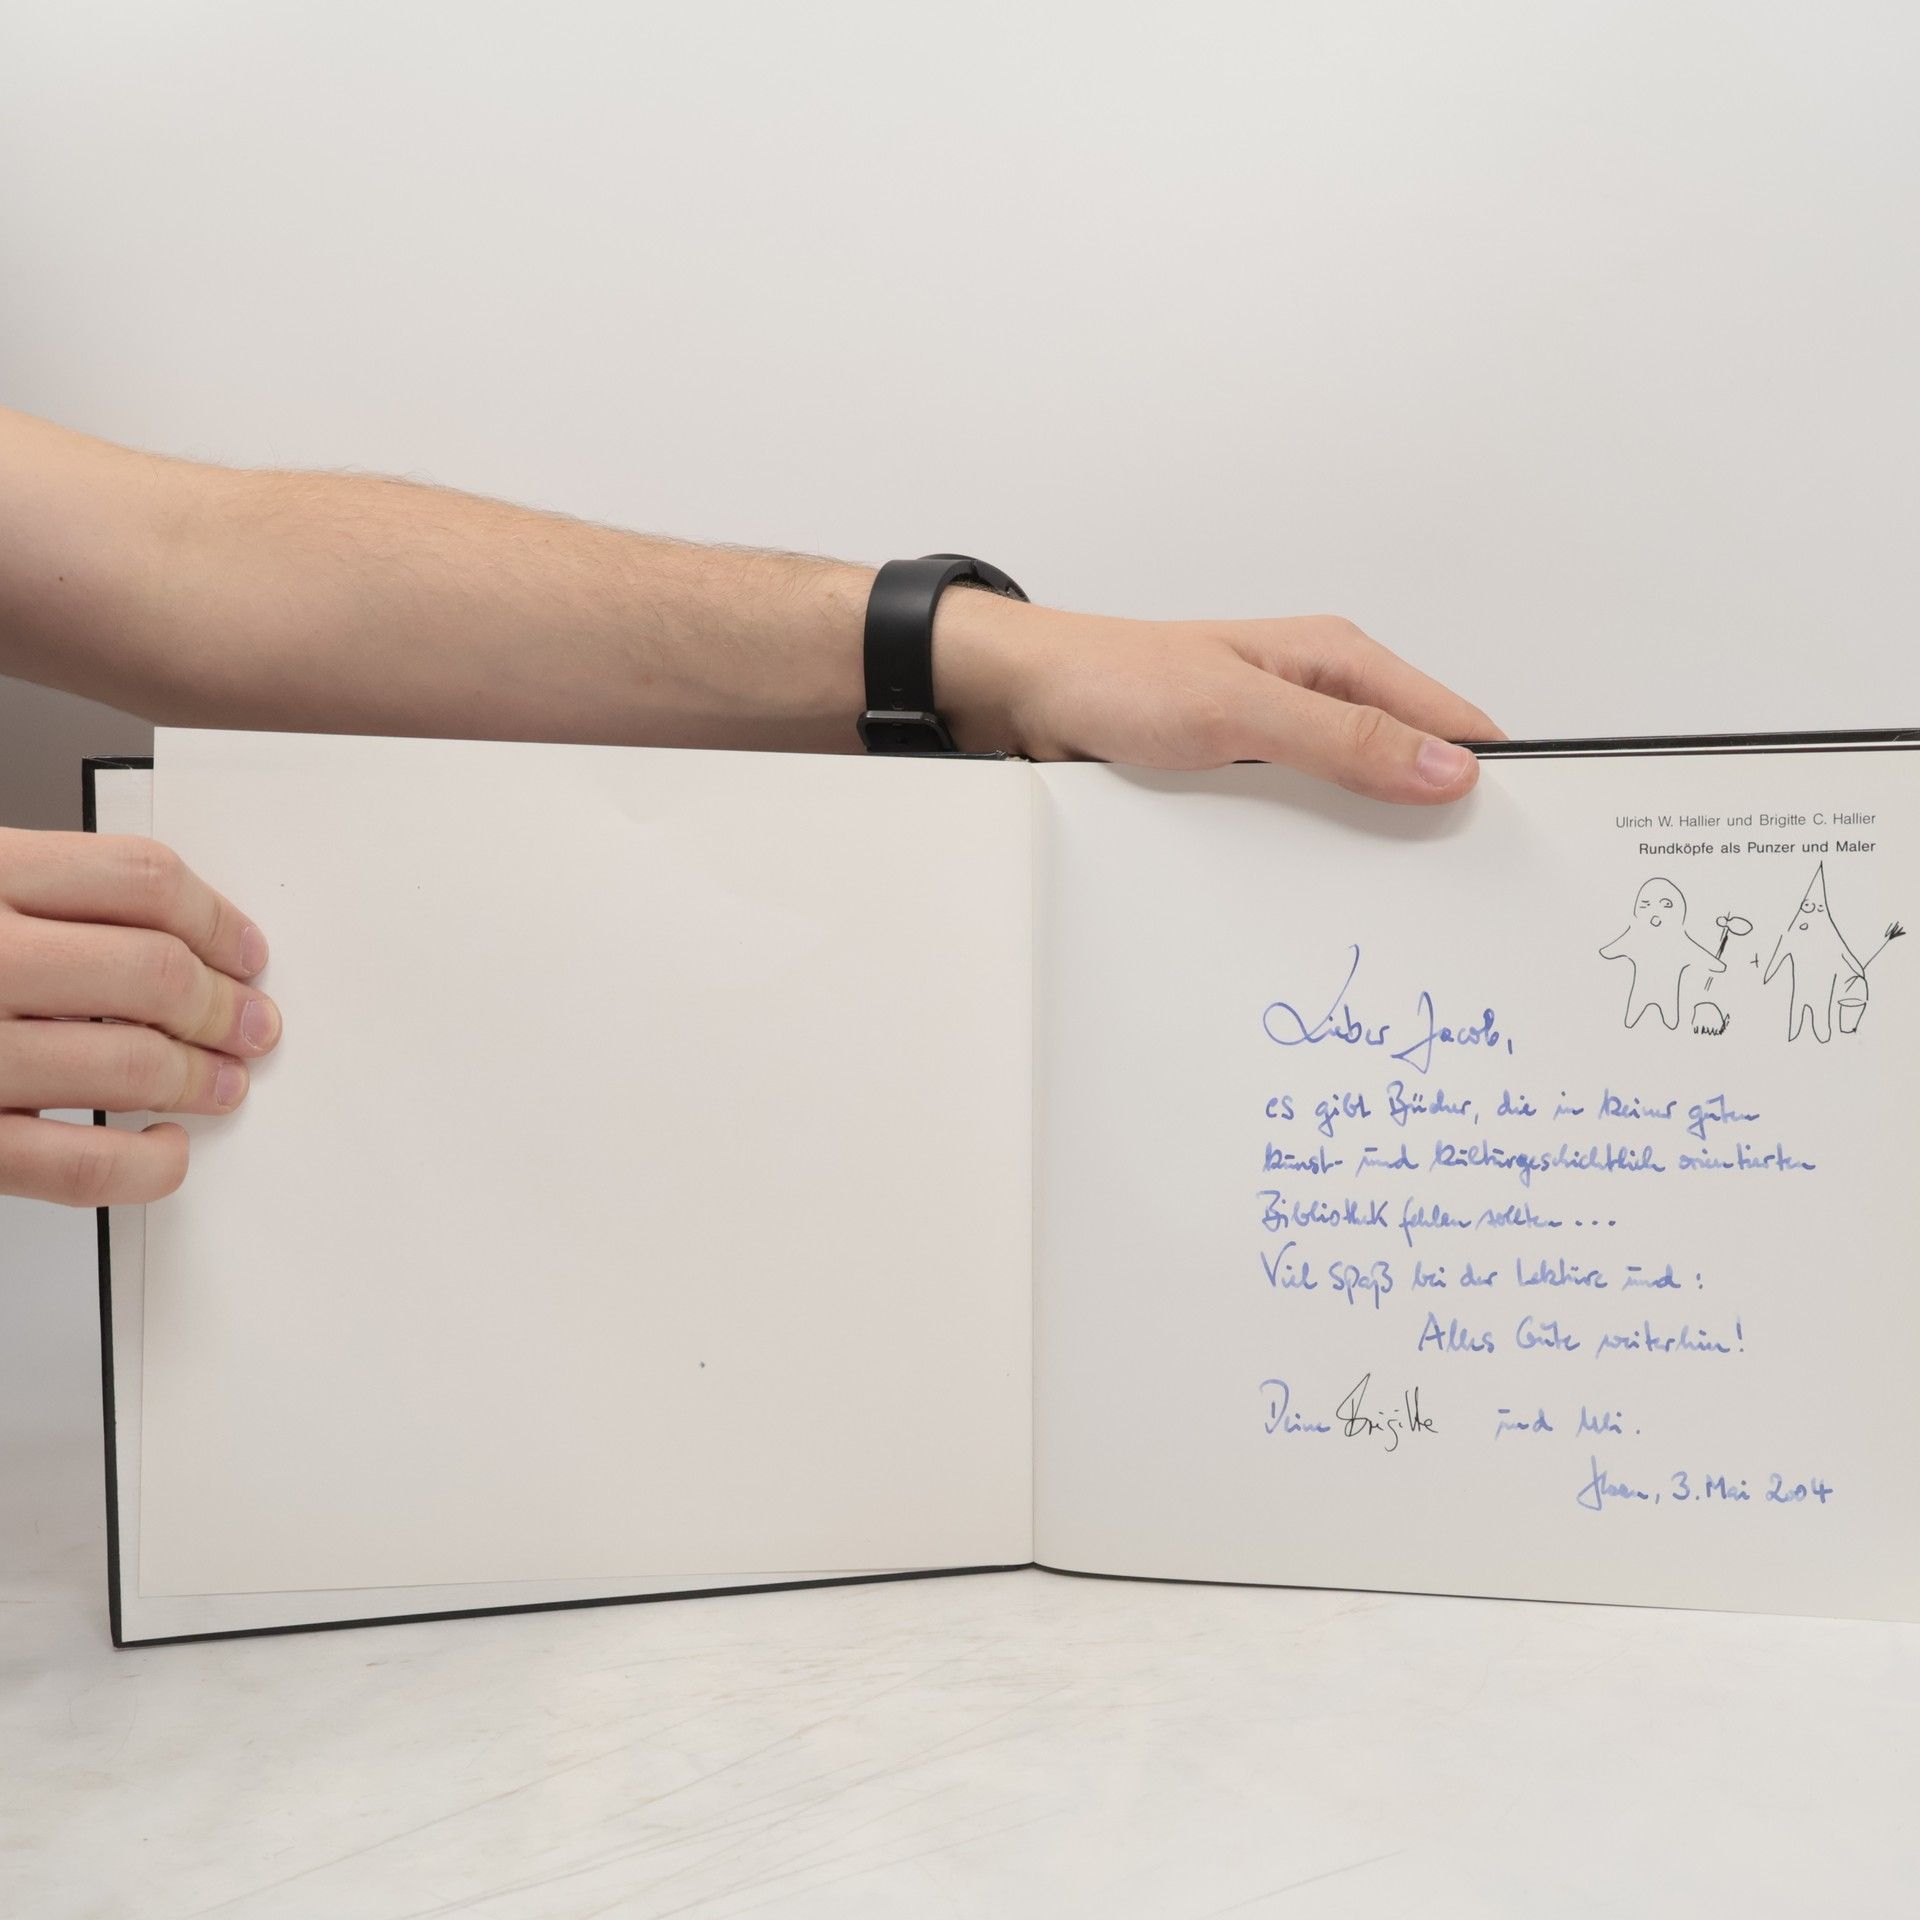 Ulrich W. Hallier und Brigitte C. Hallier
Rundköpfe als Punzer und Maler
+
Lieber Jacob,
es gibt Bücher, die in keiner guten
kunst- und kulturgeschichtlich orientierten
Bibliothek fehlen sollten...
Viel Spaß bei der Lektüre und:
Alles Gute weiterhin!
Deine Brigitte und Uli.
3. Mai 2004